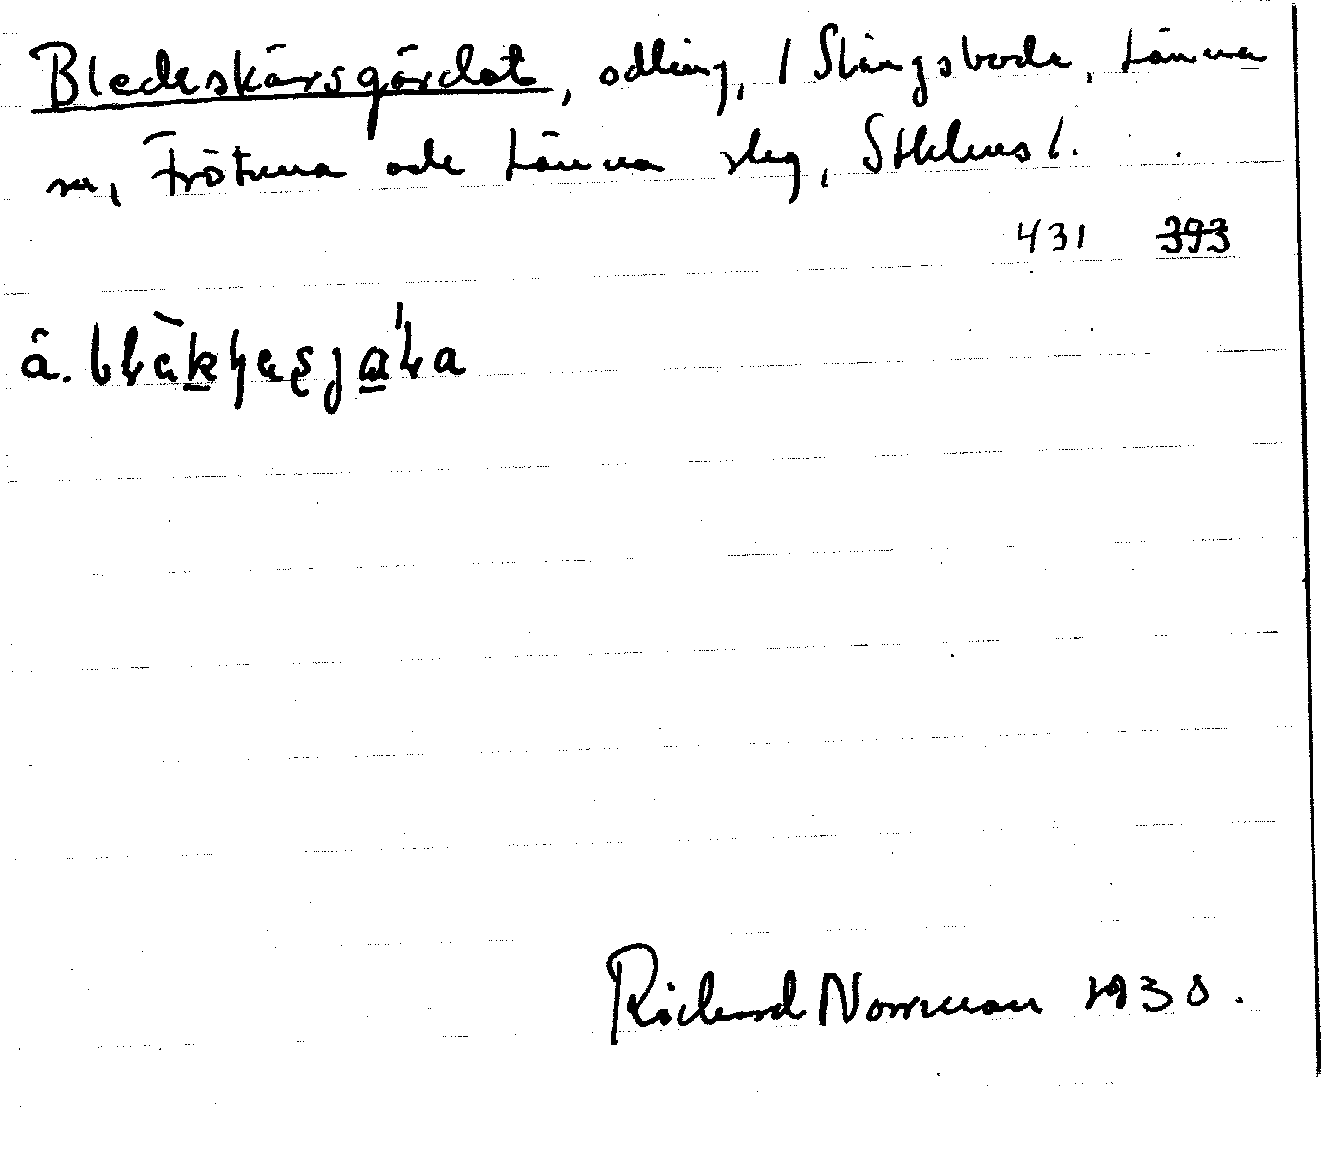 Bledeskärsgärdet, odling, / Slängsboda, Länna
sn, Frötuna och Länna slg, Sthlms l.
431 393
å.
Rickard Norrman 1930.